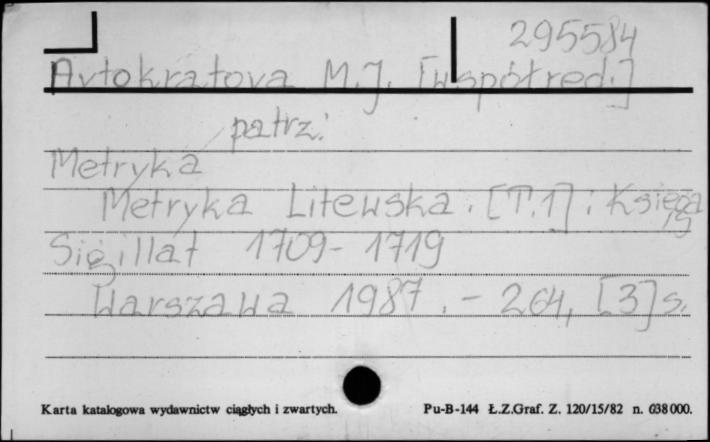 295584
Avtokratova M.J. [współred.]
patrz:
Metryka
Metryka Litewska. [T.1]: Księga
Sigillat 1709-1719
Warszawa 1987. - 264, [3] s.
Karta katalogowa wydawnictw ciągłych i zwartych.
Pu-B-144 Ł.Z.Graf. Z. 120/15/82 n. 638 000.